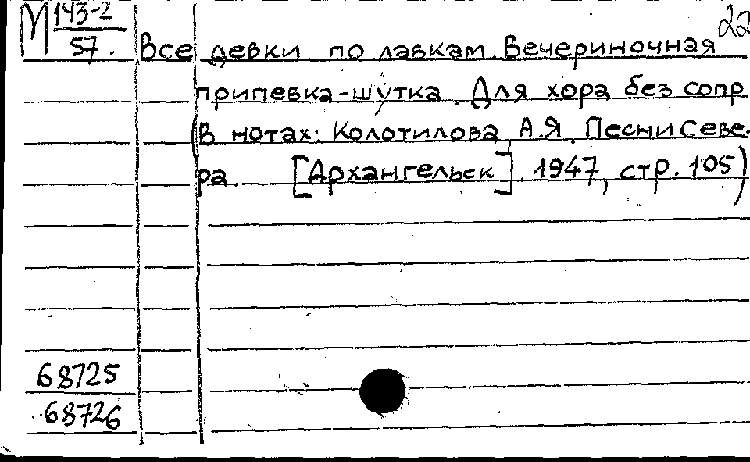 М 143-2
57. Все девки по лавкам. Вечериночная
припевка-шутка. Для хора без сопр.
(В нотах: Колотилова, А.Я. Песни Севе-
ра. [Архангельск]. 1947, стр. 105)
68725
68726